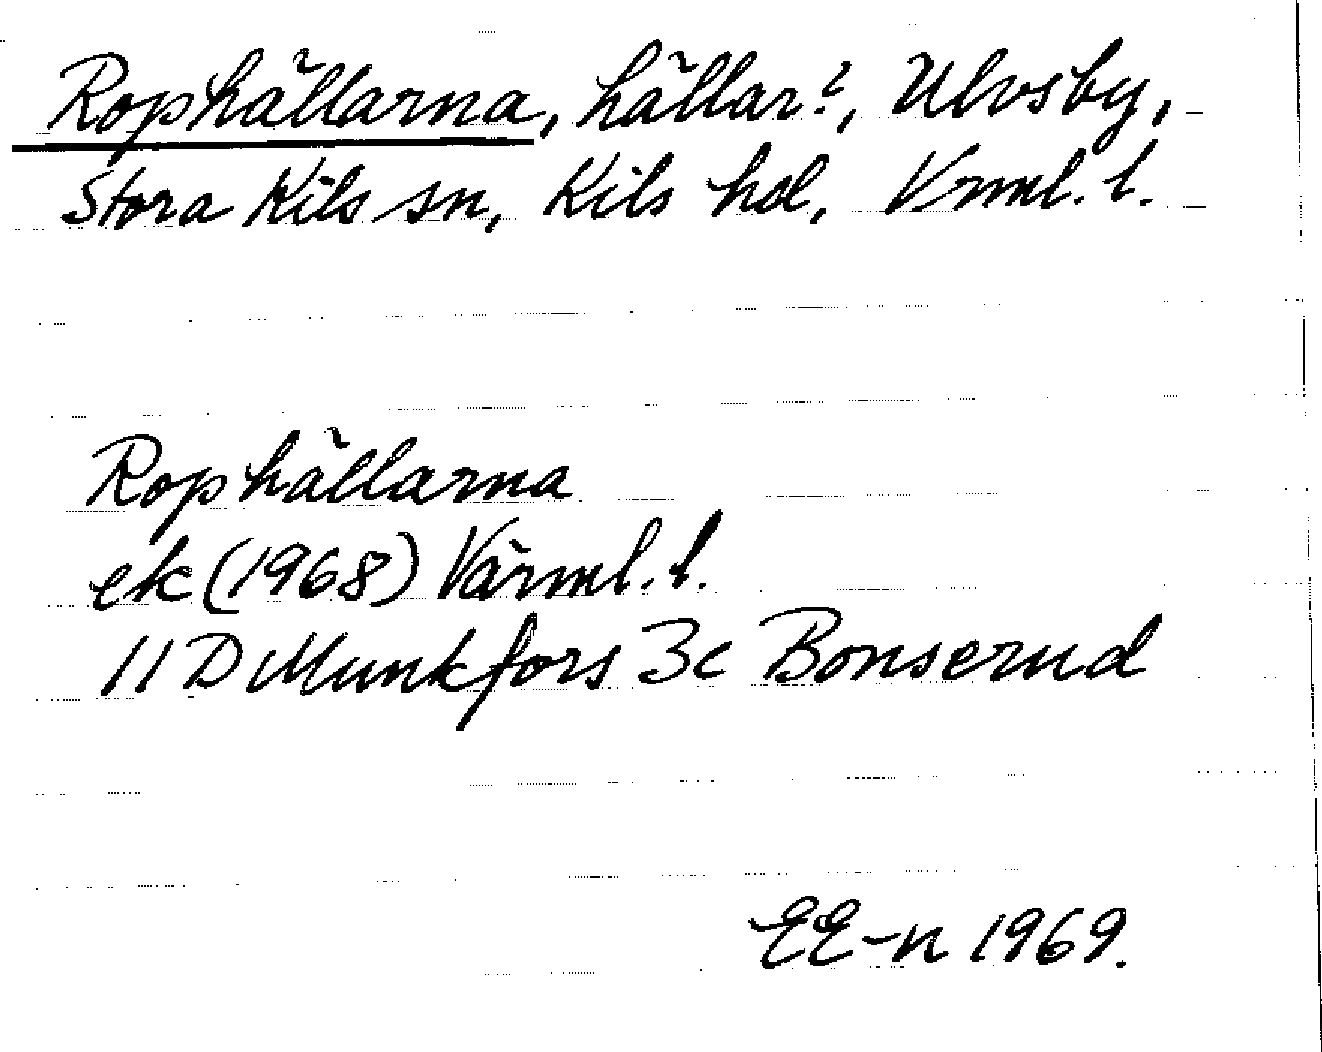 Rophällarna, hällar?, Ulvsby,
Stora Kils sn, Kils hd, Vrml. l.
Rophällarna
ek (1968) Värml. l.
11 D Munkfors 3c Bonserud
EE-n 1969.